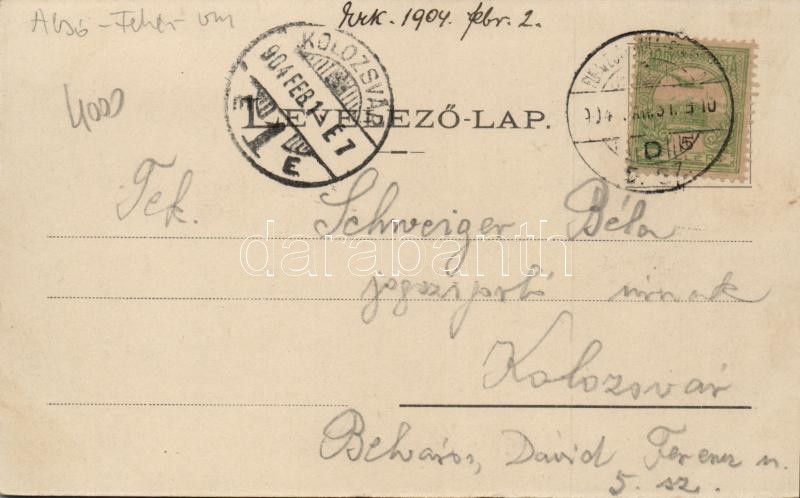 Alsó-Fehér vm
Érk. 1904. febr. 2.
4000
KOLOZSVÁR
904 FEB. 1
E 7
1
E.
LEVELEZŐ-LAP.
D
Tek. Schweiger Béla
darabanth
joga
úrnak
Kolozsvár
Belváros, Dávid Ferenc u.
5. sz.